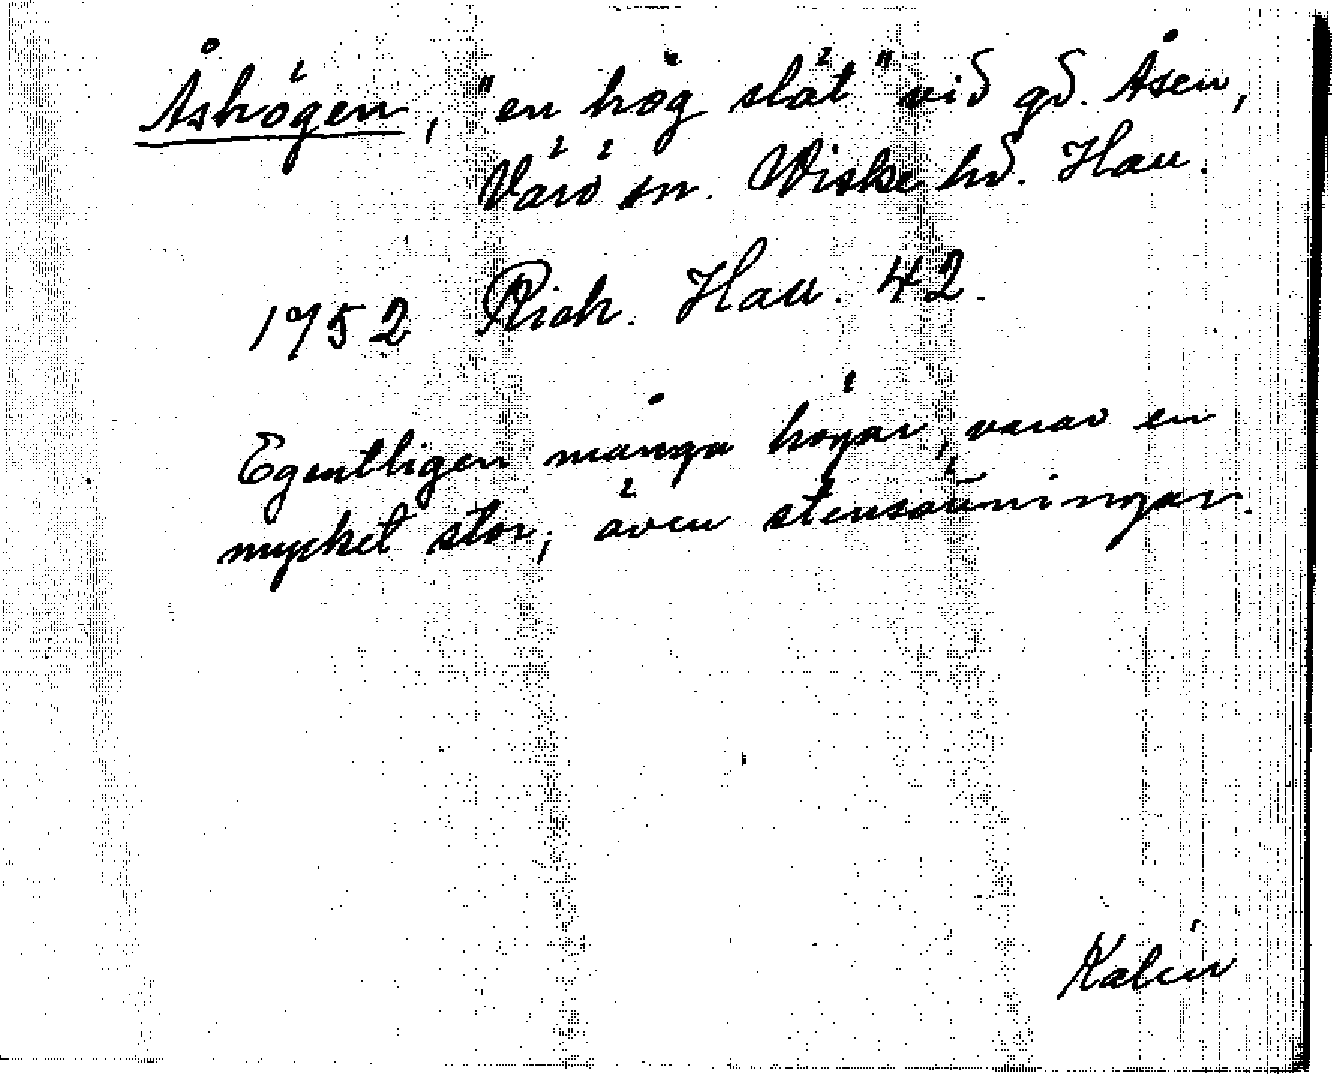 Åshögen, "en hög slät" vid gd. Åsen,
Värö sn. Wiske hd. Hall.
1752 Rich. Hall. 42.
Egentligen många högar, varav en
mycket stor; även stensättningar.
Kalén